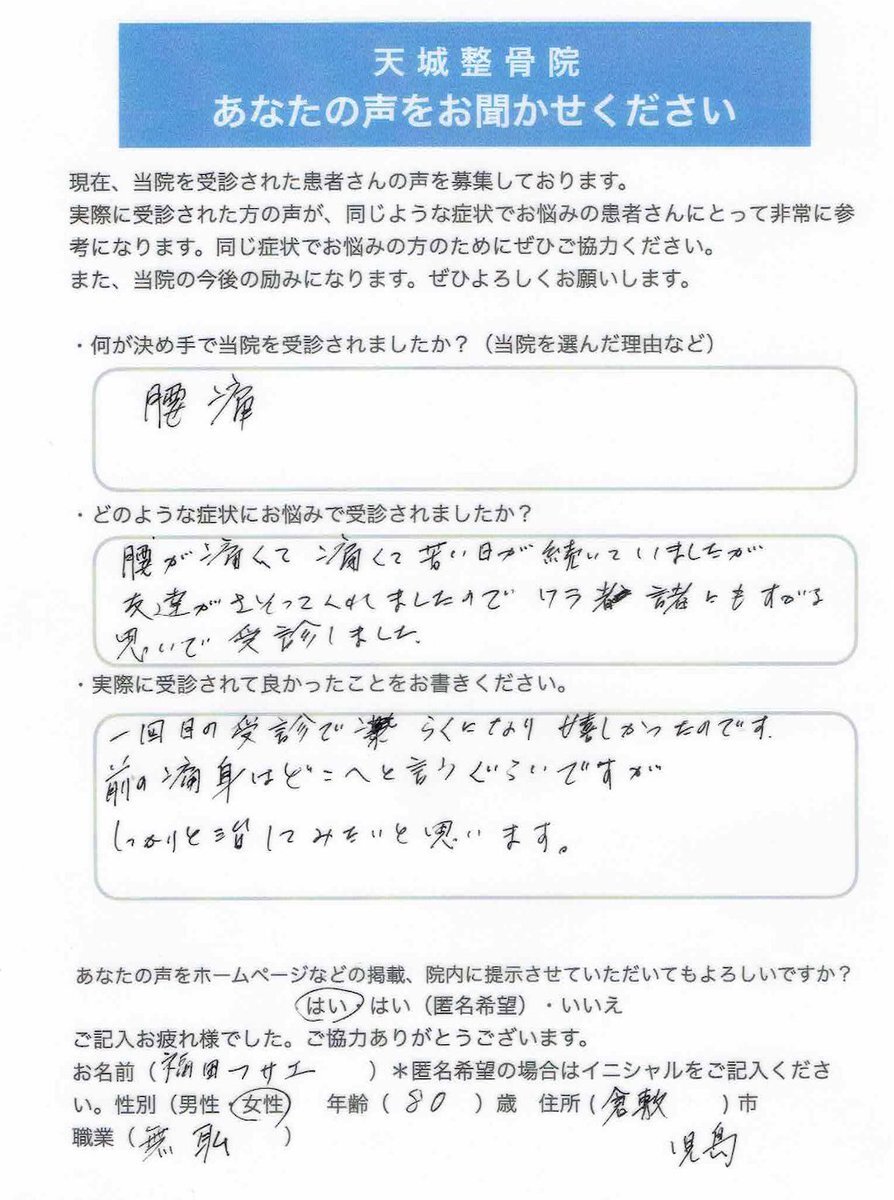 天城整骨院
あなたの声をお聞かせください
現在、当院を受診された患者さんの声を募集しております。
実際に受診された方の声が、同じような症状でお悩みの患者さんにとって非常に参
考になります。同じ症状でお悩みの方のためにぜひご協力ください。
また、当院の今後の励みになります。ぜひよろしくお願いします。
・何が決め手で当院を受診されましたか？（当院を選んだ理由など）
腰痛
・どのような症状にお悩みで受診されましたか？
腰が痛くて痛くて苦い日が続いていましたが
友達がさそってくれましたので ワラ 諸にもすがる
思いで受診しました.
・実際に受診されて良かったことをお書きください。
一回目の受診で らくになり嬉しかったのです.
前の痛身はどこへと言うぐらいですが
しっかりと治してみたいと思います。
あなたの声をホームページなどの掲載、院内に提示させていただいてもよろしいですか？
はい・はい（匿名希望）・いいえ
ご記入お疲れ様でした。ご協力ありがとうございます。
お名前（福田フサエ）＊匿名希望の場合はイニシャルをご記入くださ
い。性別（男性・女性） 年齢（80）歳 住所（倉敷）市
職業（無職） 児島